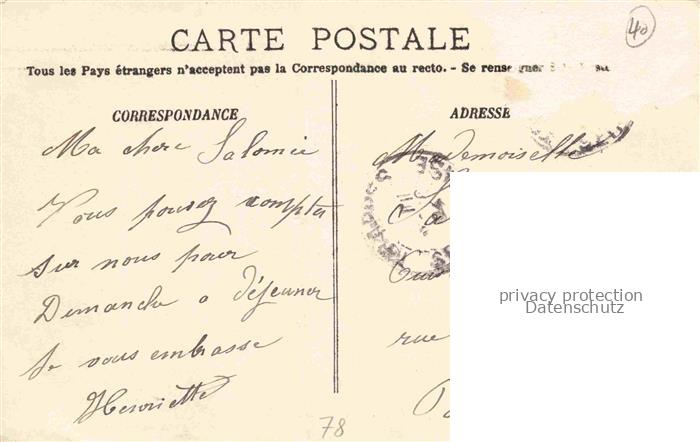 40
CARTE POSTALE
Tous les Pays étrangers n'acceptent pas la Correspondance au recto. - Se renseigner
CORRESPONDANCE
Ma chere Salomée
Vous pouvez compter
sur nous pour
Dimanche a déjeuner
Je vous embrasse
Henriette
78
ADRESSE
Mademoiselle
rue
privacy protection
Datenschutz